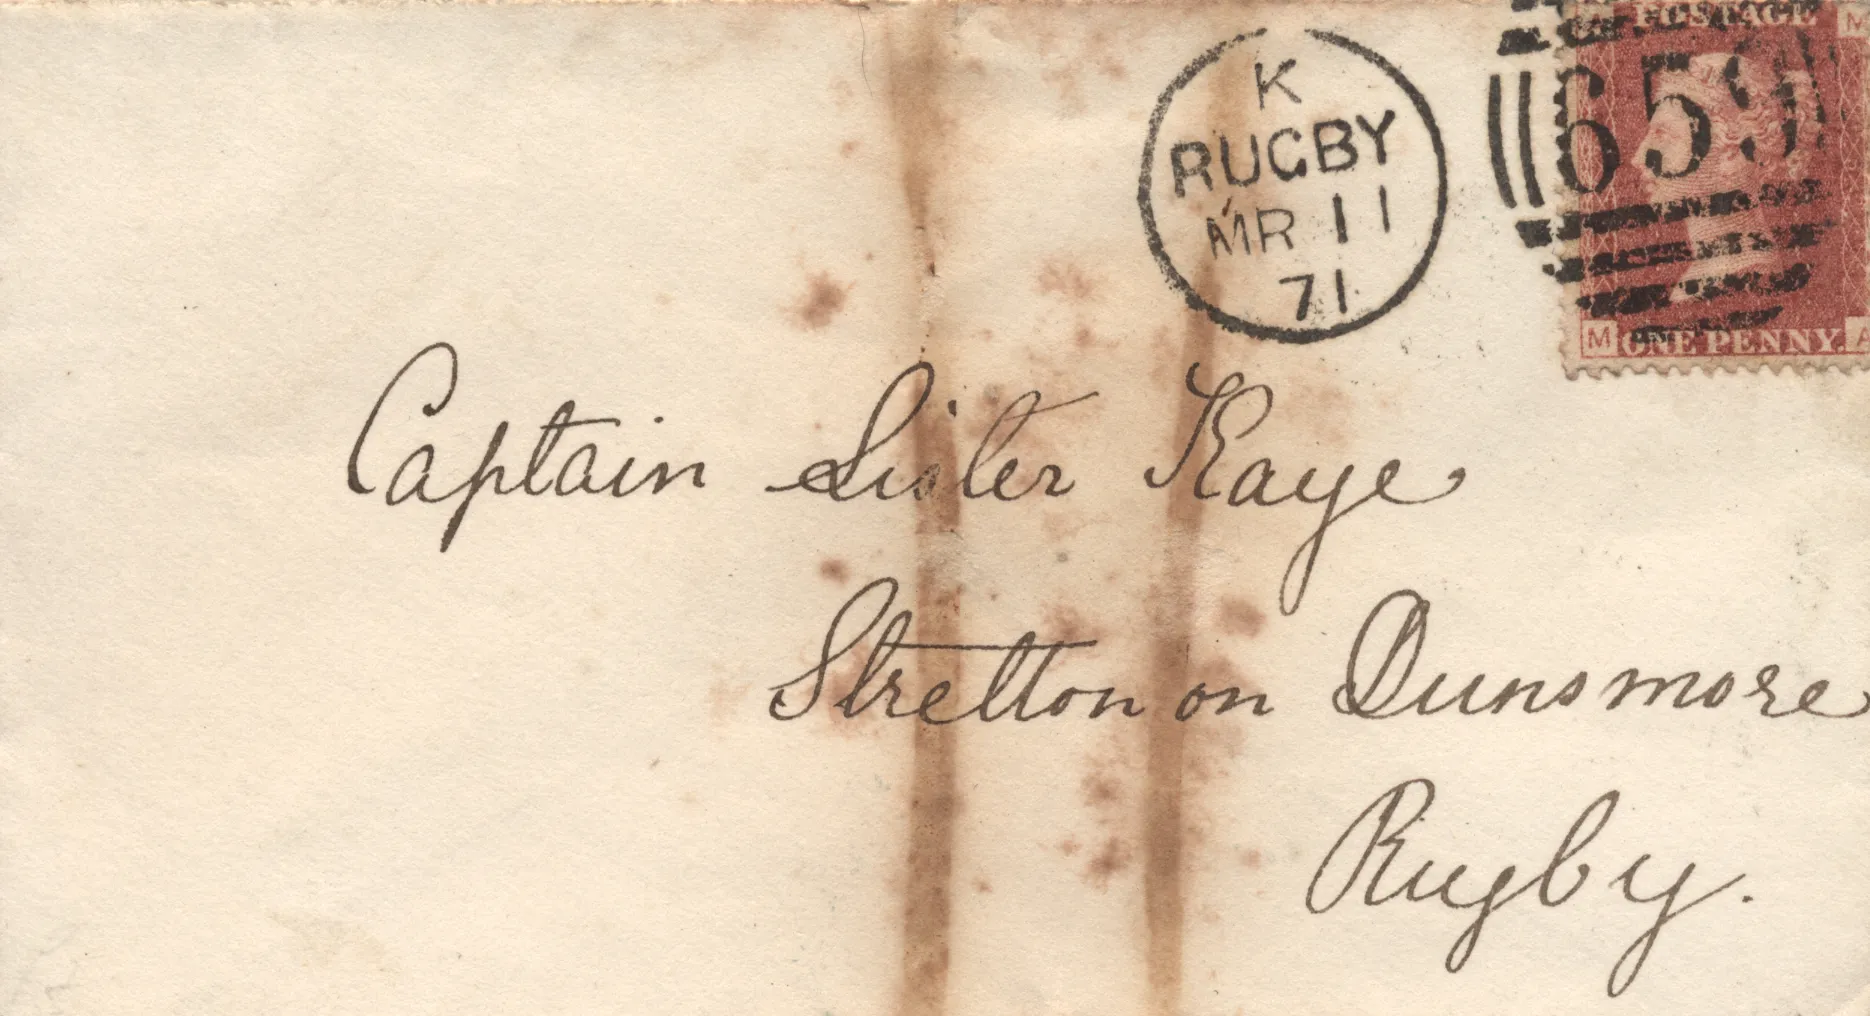 K
RUGBY
MR 11
71
659
POSTAGE
M
M ONE PENNY. A
Captain Lister Kaye
Stretton on Dunsmore
Rugby.